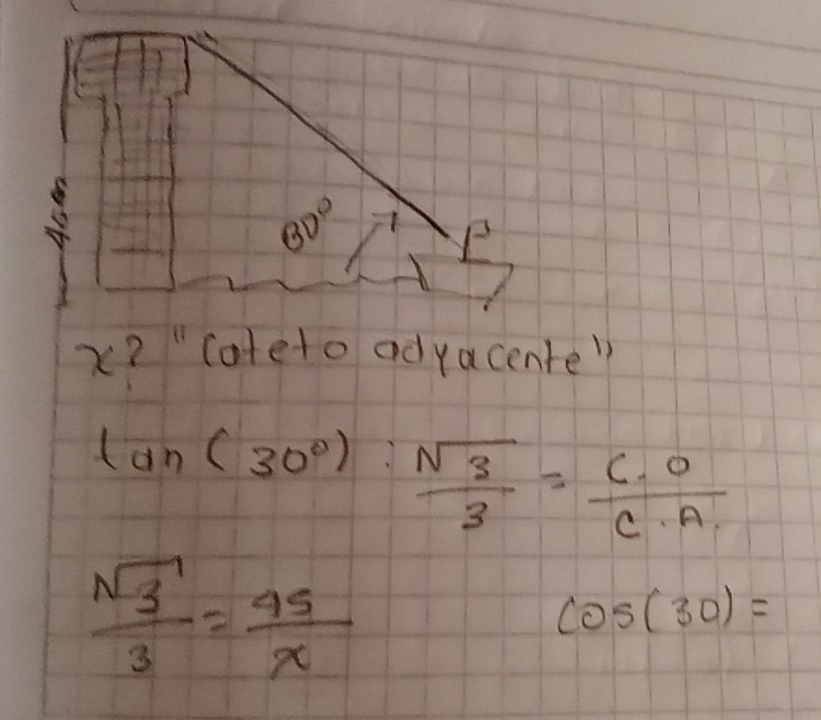 30°
x? "Cateto adyacente"
tan(30°): √3/3 = C.O/C.A.
√3/3 = 45/x cos(30)=